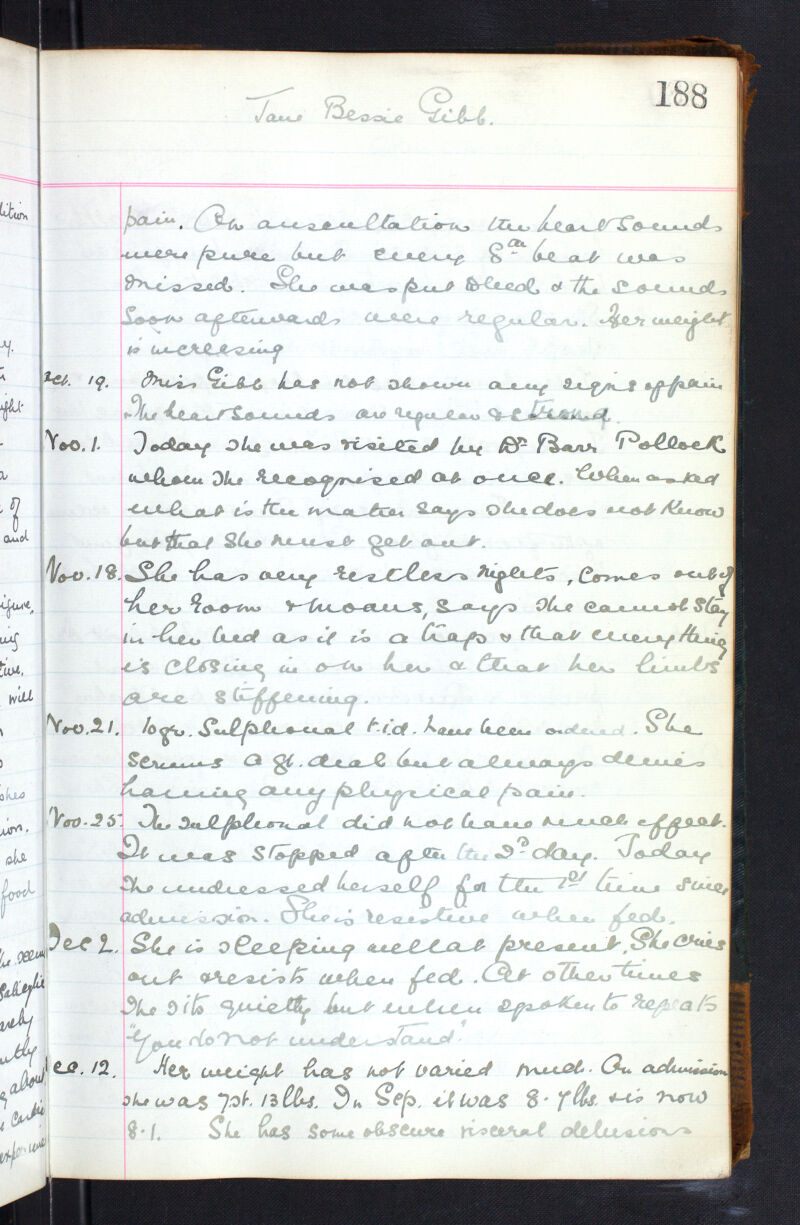 188
Jane Bessie Gibb.
pain. On auscultation the heart sounds
were pure but every 8th beat was
missed. She was put to bed & the sounds
soon afterwards were regular. Her weight
is increasing
Oct. 19. Miss Gibb has not shown any signs of pain
The heart sounds are regular & strong.
Nov. 1. Today she was visited by Dr Barr Pollock
whom she recognised at once. When asked
what is the matter says she does not know
but that she must get out.
Nov. 18. She has very restless nights, comes out of
her room & moans, says she cannot stay
in her bed as it is a trap & that everything
is closing in on her & that her limbs
are stiffening.
Nov. 21. 10gr. Sulphonal t.i.d. have been ordered. She
screams a gt. deal but always denies
having any physical pain.
Nov. 25. The sulphonal did not have much effect.
It was stopped after the 2d day. Today
she undressed herself for the 1st time since
admission. She is resistive when fed.
Dec 2. She is sleeping well at present. She cries
out & resists when fed. At other times
she sits quietly but when spoken to repeats
"You do not understand".
Dec. 12. Her weight has not varied much. On admission
she was 7st. 13lbs. In Sep. it was 8.7lbs. & is now
8.1. She has some obscure visceral delusions
dition
ight
a
of
and
will
she
food
Salicylic
about